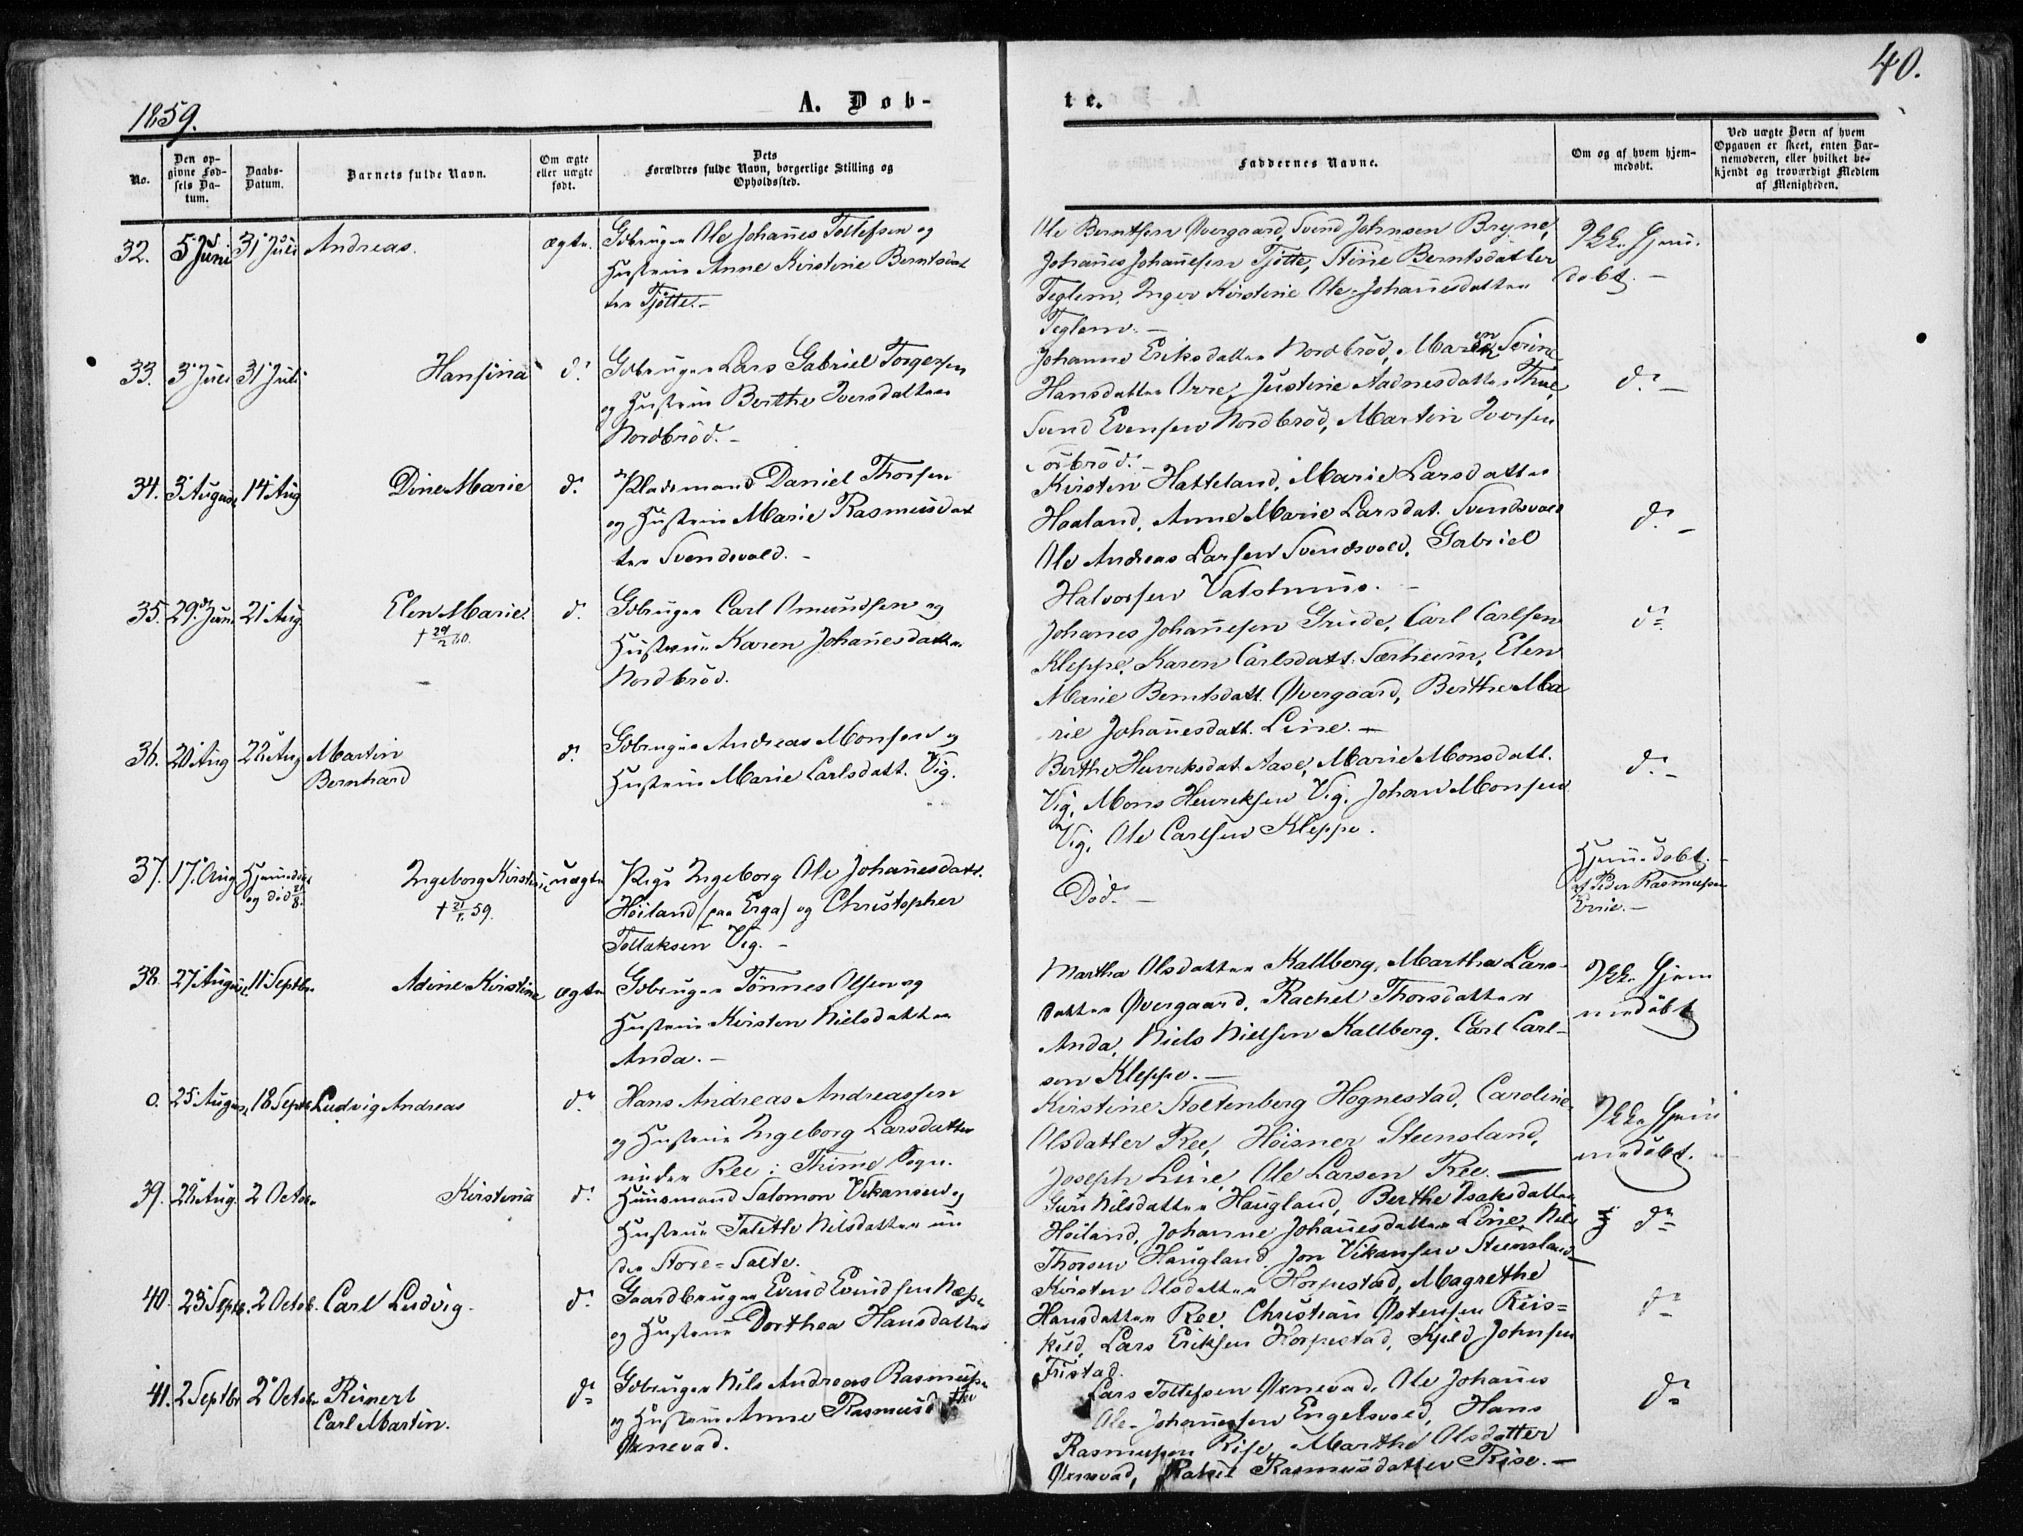 1859.
A. Døb-
te.
40.
No.
Den op-
givne Fød-
sels Da-
tum.
Daabs-
Datum.
Barnets fulde Navn.
Om ægte
eller uægte
født.
Dets
Forældres fulde Navn, borgerlige Stilling og
Opholdssted.
Faddernes Navne.
Om og af hvem hjem-
medøbt.
Ved uægte Børn af hvem
Opgaven er skeet, enten Bar-
nemoderen, eller hvilket be-
kjendt og troværdigt Medlem
af Menigheden.
32. 5 Juni 31 Juli Andreas. ægte.
Gdbruger Ole Johannes Tollefsen og
Hustrue Anne Kirstine Berntsdat
ter Tjøtte. –
Ole Berntsen Øvergaard, Svend Johnsen Bryne,
Johannes Johannesen Tjøtte, Stine Berntsdatter
Teglem, Inger Kirstine Ole-Johannesdatter
Teglem. –
Ikke Hjem.
døbt. –
33. 3 Juli 31 Juli Hansina do
Gdbruger Lars Gabriel Torgersen
og Hustrue Berthe Iversdatter
Nordbrød. –
Johanne Eriksdatter Nordbrød, Maren Serine
Hansdatter Orre, Justine Aadnesdatter Thue,
Svend Evensen Nordbrød, Martin Iversen
Sørbrød. –
do –
34. 3 August 14 Aug Dine Marie do
Pladsmand Daniel Thorsen
og Hustrue Marie Rasmusdat
ter Svendsvold. –
Kirsten Hatteland, Marie Larsdatter
Haaland, Anne Marie Larsdat. Svendsvold
Ole Andreas Larsen Svendsvold, Gabriel
Halvorsen Vatshuus. –
do –
35. 29 Juni 21 Aug. Elen Marie. do
† 29/2 60.
Gdbruger Carl Omundsen og
Hustrue Karen Johannesdatter
Nordbrød.
Johannes Johannesen Grude, Carl Carlsen
Kleppe, Karen Carlsdatt. Særheim, Elen
Marie Berntsdatt. Øvergaard, Berthe Ma
rie Johannesdatt. Line. –
do
36. 20 Aug 22 Aug Martin
Bernhard do
Gdbruger Andreas Monsen og
Hustrue Marie Carlsdatt. Vig.
Berthe Henriksdat. Aase, Marie Monsdatt.
Vig, Mons Henriksen Vig, Johan Monsen
Vig, Ole Carlsen Kleppe.
do –
37. 17 Aug Hjemmedøbt
og død 21/8. Ingeborg Kirstine uægte
† 21/8 59.
Pige Ingeborg Ole Johannesdatt.
Høiland (paa Erga) og Christopher
Tollaksen Vig. –
Død. –
Hjemmedøbt. –
af Peder Rasmussen
38. 27 August 11 Septbr Adine Kirstine ægte
Gdbruger Tønnes Olsen og
Hustrue Kirsten Nielsdatter
Anda. –
Martha Olsdatter Kallberg, Martha Lars-
datter Øvergaard, Rachel Thorsdatter
Anda, Niels Nielsen Kallberg, Carl Carl-
sen Kleppe. –
Ikke Hjem
medøbt
0. 25 August 18 Septb Ludvig Andreas do
Hans Andreas Andreassen
og Hustrue Ingeborg Larsdatter
under Ree i Thime Sogn.
Kirstine Stoltenberg Hognestad, Caroline
Olsdatter Ree, Høisner Steensland,
Joseph Line, Ole Larsen Ree. –
Ikke Hjem
medøbt. –
39. 22 Aug. 2 Octobr Kirstina do
Huusmand Salomon Vikansen og
Hustrue Talette Nilsdatter un
der Store-Salte.
Guri Nilsdatter Haugland, Berthe Isaksdatter
Høiland, Johanne Johannesdatter Line, Nils
Thorsen Haugland, Jon Vikansen Steensland –
do
40. 23 Septb. 2 Octob. Carl Ludvig. do
Gaardbruger Evind Evindsen Næsse
og Hustrue Dorthea Hansdatter
Kirsten Olsdatter Horpestad, Magrethe
Hansdatter Ree, Christian Østensen Riis-
kild, Lars Eriksen Horpestad, Kjeld Johnsen
Fristad.
do
41. 2 Septbr 2 Octobr Reinert
Carl Martin. do
Gdbruger Nils Andreas Rasmussen
og Hustrue Anne Rasmusd
Øxnevad.
Lars Tollefsen Øxnevad, Ole Johannes
Ole-Johannessen Engelsvold, Hans
Rasmussen Rise, Marthe Olsdatter
Øxnevad, Rasmusdatter Rise. –
do